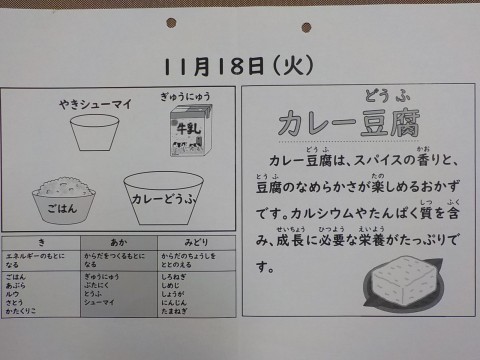 11月18日（火）
やきシューマイ
ぎゅうにゅう
牛乳
ごはん
カレーどうふ
き
あか
みどり
エネルギーのもとに
なる
からだをつくるもとに
なる
からだのちょうしを
ととのえる
ごはん
あぶら
ルウ
さとう
かたくりこ
ぎゅうにゅう
ぶたにく
とうふ
シューマイ
しろねぎ
しめじ
しょうが
にんじん
たまねぎ
どうふ
カレー豆腐
どうふ
かお
カレー豆腐は、スパイスの香りと、
とうふ
たの
豆腐のなめらかさが楽しめるおかず
しつ
ふく
です。カルシウムやたんぱく質を含
せいちょう
ひつよう
えいよう
み、成長に必要な栄養がたっぷりで
す。